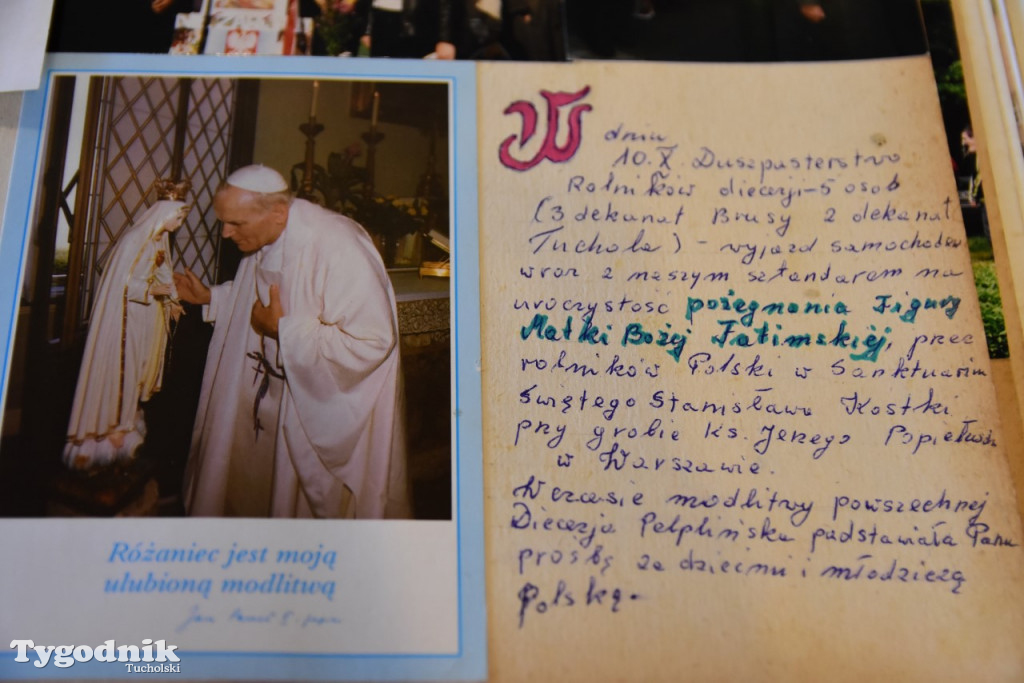 Różaniec jest moją
ulubioną modlitwą
W
dniu
10.X. Duszpasterstwo
Rolników diecezji-5 osób
(3 dekanat Brusy 2 dekanat
Tuchola) - wyjazd samochodem
wraz z naszym sztandarem na
uroczystość pożegnania Figury
Matki Bożej Fatimskiéj, przez
rolników Polski w Sanktuarium
Świętego Stanisława Kostki
przy grobie ks. Jerzego Popiełuszki
w Warszawie.
W czasie modlitwy powszechnej
Diecezja Pelplińska
prośbę za dziećmi i młodzieżą
Polską-
Tygodnik
Tucholski